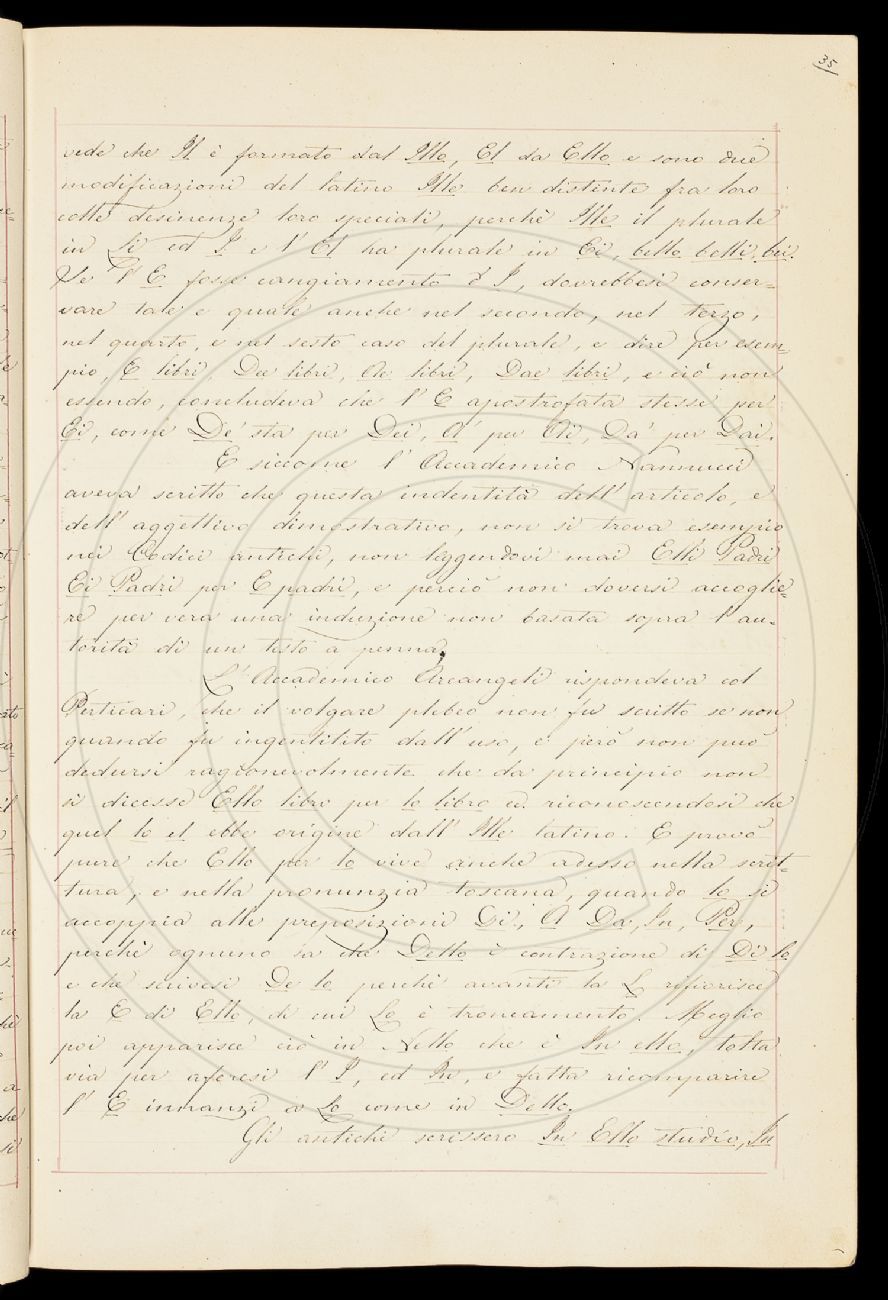 35
vede che Il è formato dal Illo, El da Ello e sono due
modificazioni del latino Ille ben distinte fra loro
colle desinenze loro speciali, perchè Ille il plurale
in Li ed I e l' El ha plurale in Ei, bello belli bei.
Se l' E fosse cangiamento d' I, dovrebbesi conser=
vare tale e quale anche nel secondo, nel terzo,
nel quarto, e nel sesto caso del plurale, e dire per esem=
pio, E libri, Dee libri, Ae libri, Dae libri, e ciò non
essendo, concludeva che l' E apostrofata stesse per
Ei, come De' sta per Dei, A' per Ai, Da' per Dai.
E siccome l' Accademico Nannucci
aveva scritto che questa indentità dell' articolo, e
dell' aggettivo dimostrativo, non si trova esempio
nei Codici antichi, non leggendovi mai Elli Padri
Ei Padri per E padri, e perciò non doversi accoglie=
re per vera una induzione non basata sopra l' au=
torità di un testo a penna,
L' Accademico Arcangeli rispondeva col
Perticari, che il volgare plebeo non fu scritto se non
quando fu ingentilito dall' uso, e però non può
dedursi ragionevolmente che da principio non
si dicesse Ello libro per lo libro ed riconoscendosi che
quel lo el ebbe origine dall' Ille latino. E provò
pure che Ello per lo vive anche adesso nella scrit=
tura, e nella pronunzia toscana, quando lo si
accoppia alle preposizioni Di, A Da, In, Per,
perchè ognuno sa che Dello è contrazione di Di lo
e che scrivesi De lo perchè avanti la L riferisce
la E di Ello, di cui Lo è troncamento. Meglio
poi apparisce ciò in Nello che è In ello, tolta
via per aferesi l' I, ed In, e fatta ricomparire
l' E innanzi a Lo come in Dello.
Gli antichi scrissero In Ello studio, In